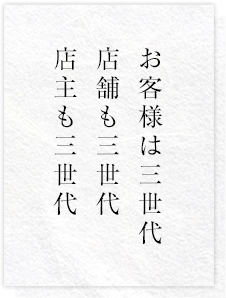 お客様は三世代
店舗も三世代
店主も三世代